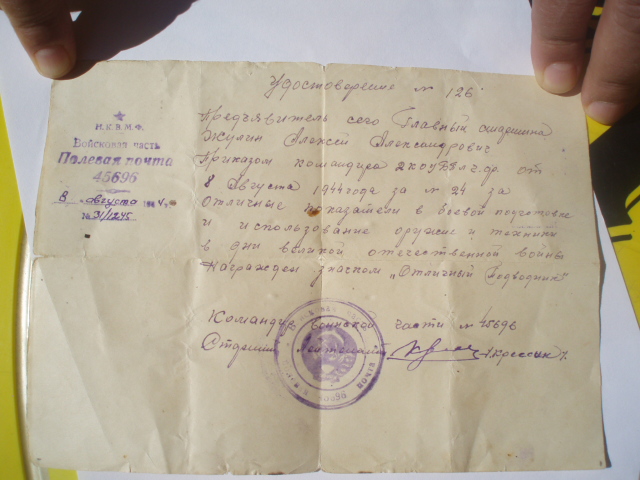 Удостоверение № 126
Н.К.В.М.Ф.
Войсковая часть
Полевая почта
45696
8 августа 1944 г.
№ 31/1245
Предъявитель сего Главный старшина
Жулин Алексей Александрович
Приказом командира от
8 Августа 1944 года за № 24 за
Отличные показатели в боевой подготовке
и использование оружие и техники
в дни великой отечественной войны
Награжден значком „Отличный Подводник"
Командир воинской части № 45696
Старший Лейтенант